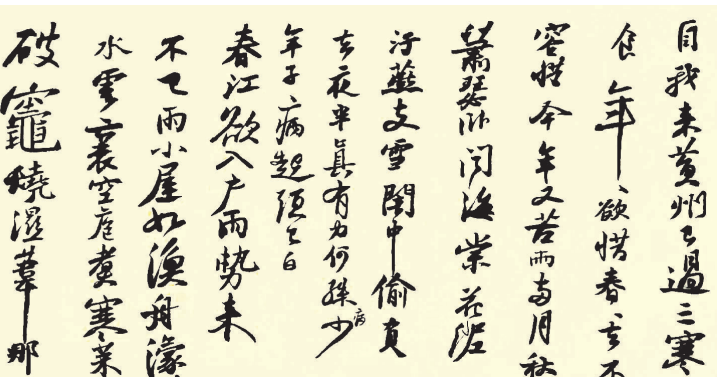 自我来黄州已過三寒
食年、欲惜春、去不
容惜今年又苦雨兩月秋
蕭瑟卧聞海棠花泥
汙燕支雪闇中偷負
去夜半真有力何殊少病
年子病起頭已白
春江欲入户雨勢来
不已雨小屋如漁舟濛
水雲裏空庖煮寒菜
破竈燒溼葦那